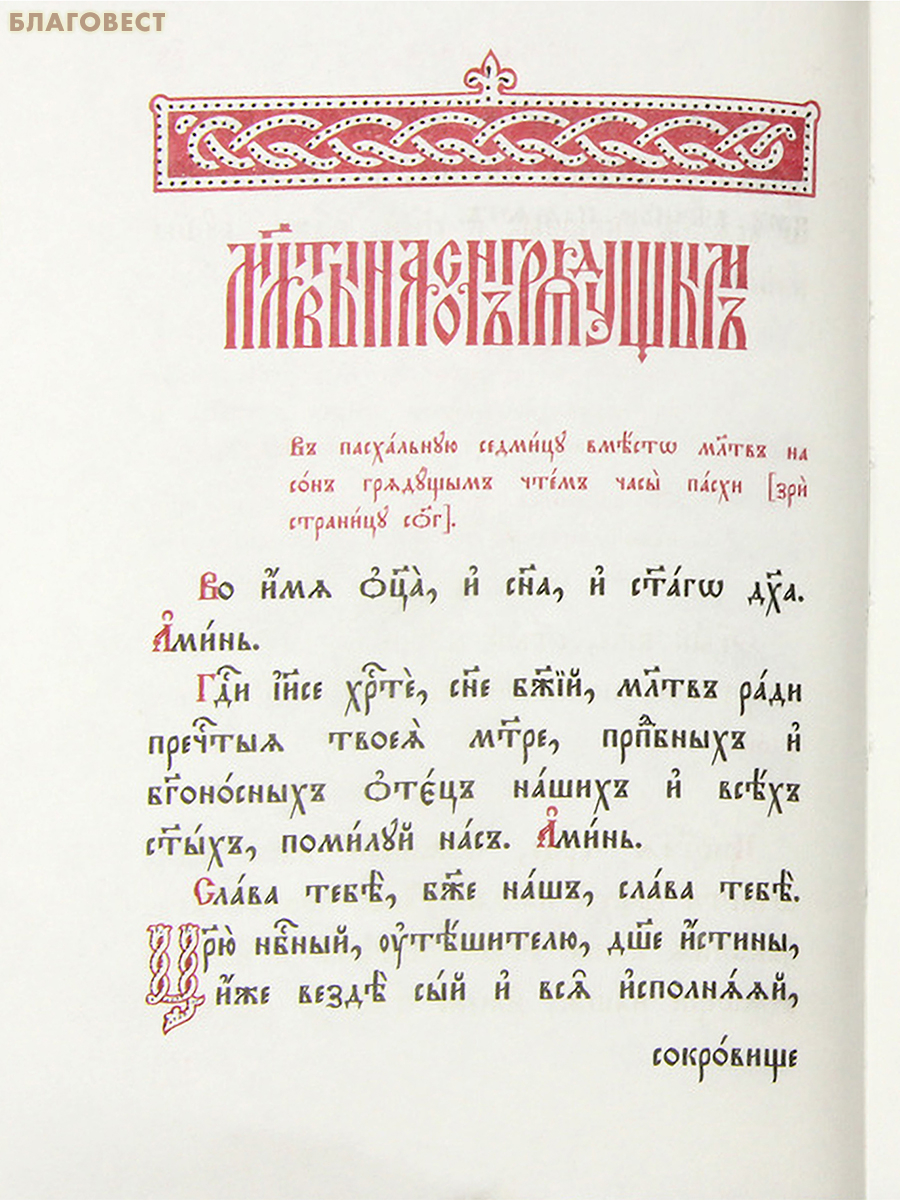 БЛАГОВЕСТ
Мл҃твы на со́нъ грѧдꙋ́щымъ
Въ пасха́льнꙋю седми́цꙋ вмѣ́стѡ мл҃твъ на
со́нъ грѧдꙋ́щымъ чте́мъ часы̀ па́схи [зрѝ
страни́цꙋ со҃г].
Во и҆́мѧ ѻ҆ц҃а̀, и҆ сн҃а, и҆ ст҃а́гѡ дх҃а.
А҆ми́нь.
Гдⷭ҇и і҆и҃се хрⷭ҇тѐ, сн҃е бж҃їй, мл҃твъ ра́ди
пречⷭ҇тыѧ твоеѧ̀ мт҃ре, прпⷣбныхъ и҆
бг҃оно́сныхъ ѻ҆тє́цъ на́шихъ и҆ всѣ́хъ
ст҃ы́хъ, поми́лꙋй на́съ. А҆ми́нь.
Сла́ва тебѣ̀, бж҃е на́шъ, сла́ва тебѣ̀.
Цр҃ю̀ нбⷭ҇ный, ᲂу҆тѣ́шителю, дш҃е и҆́стины,
и҆́же вездѣ̀ сы́й и҆ всѧ̑ и҆сполнѧ́ѧй,
сокро́вище